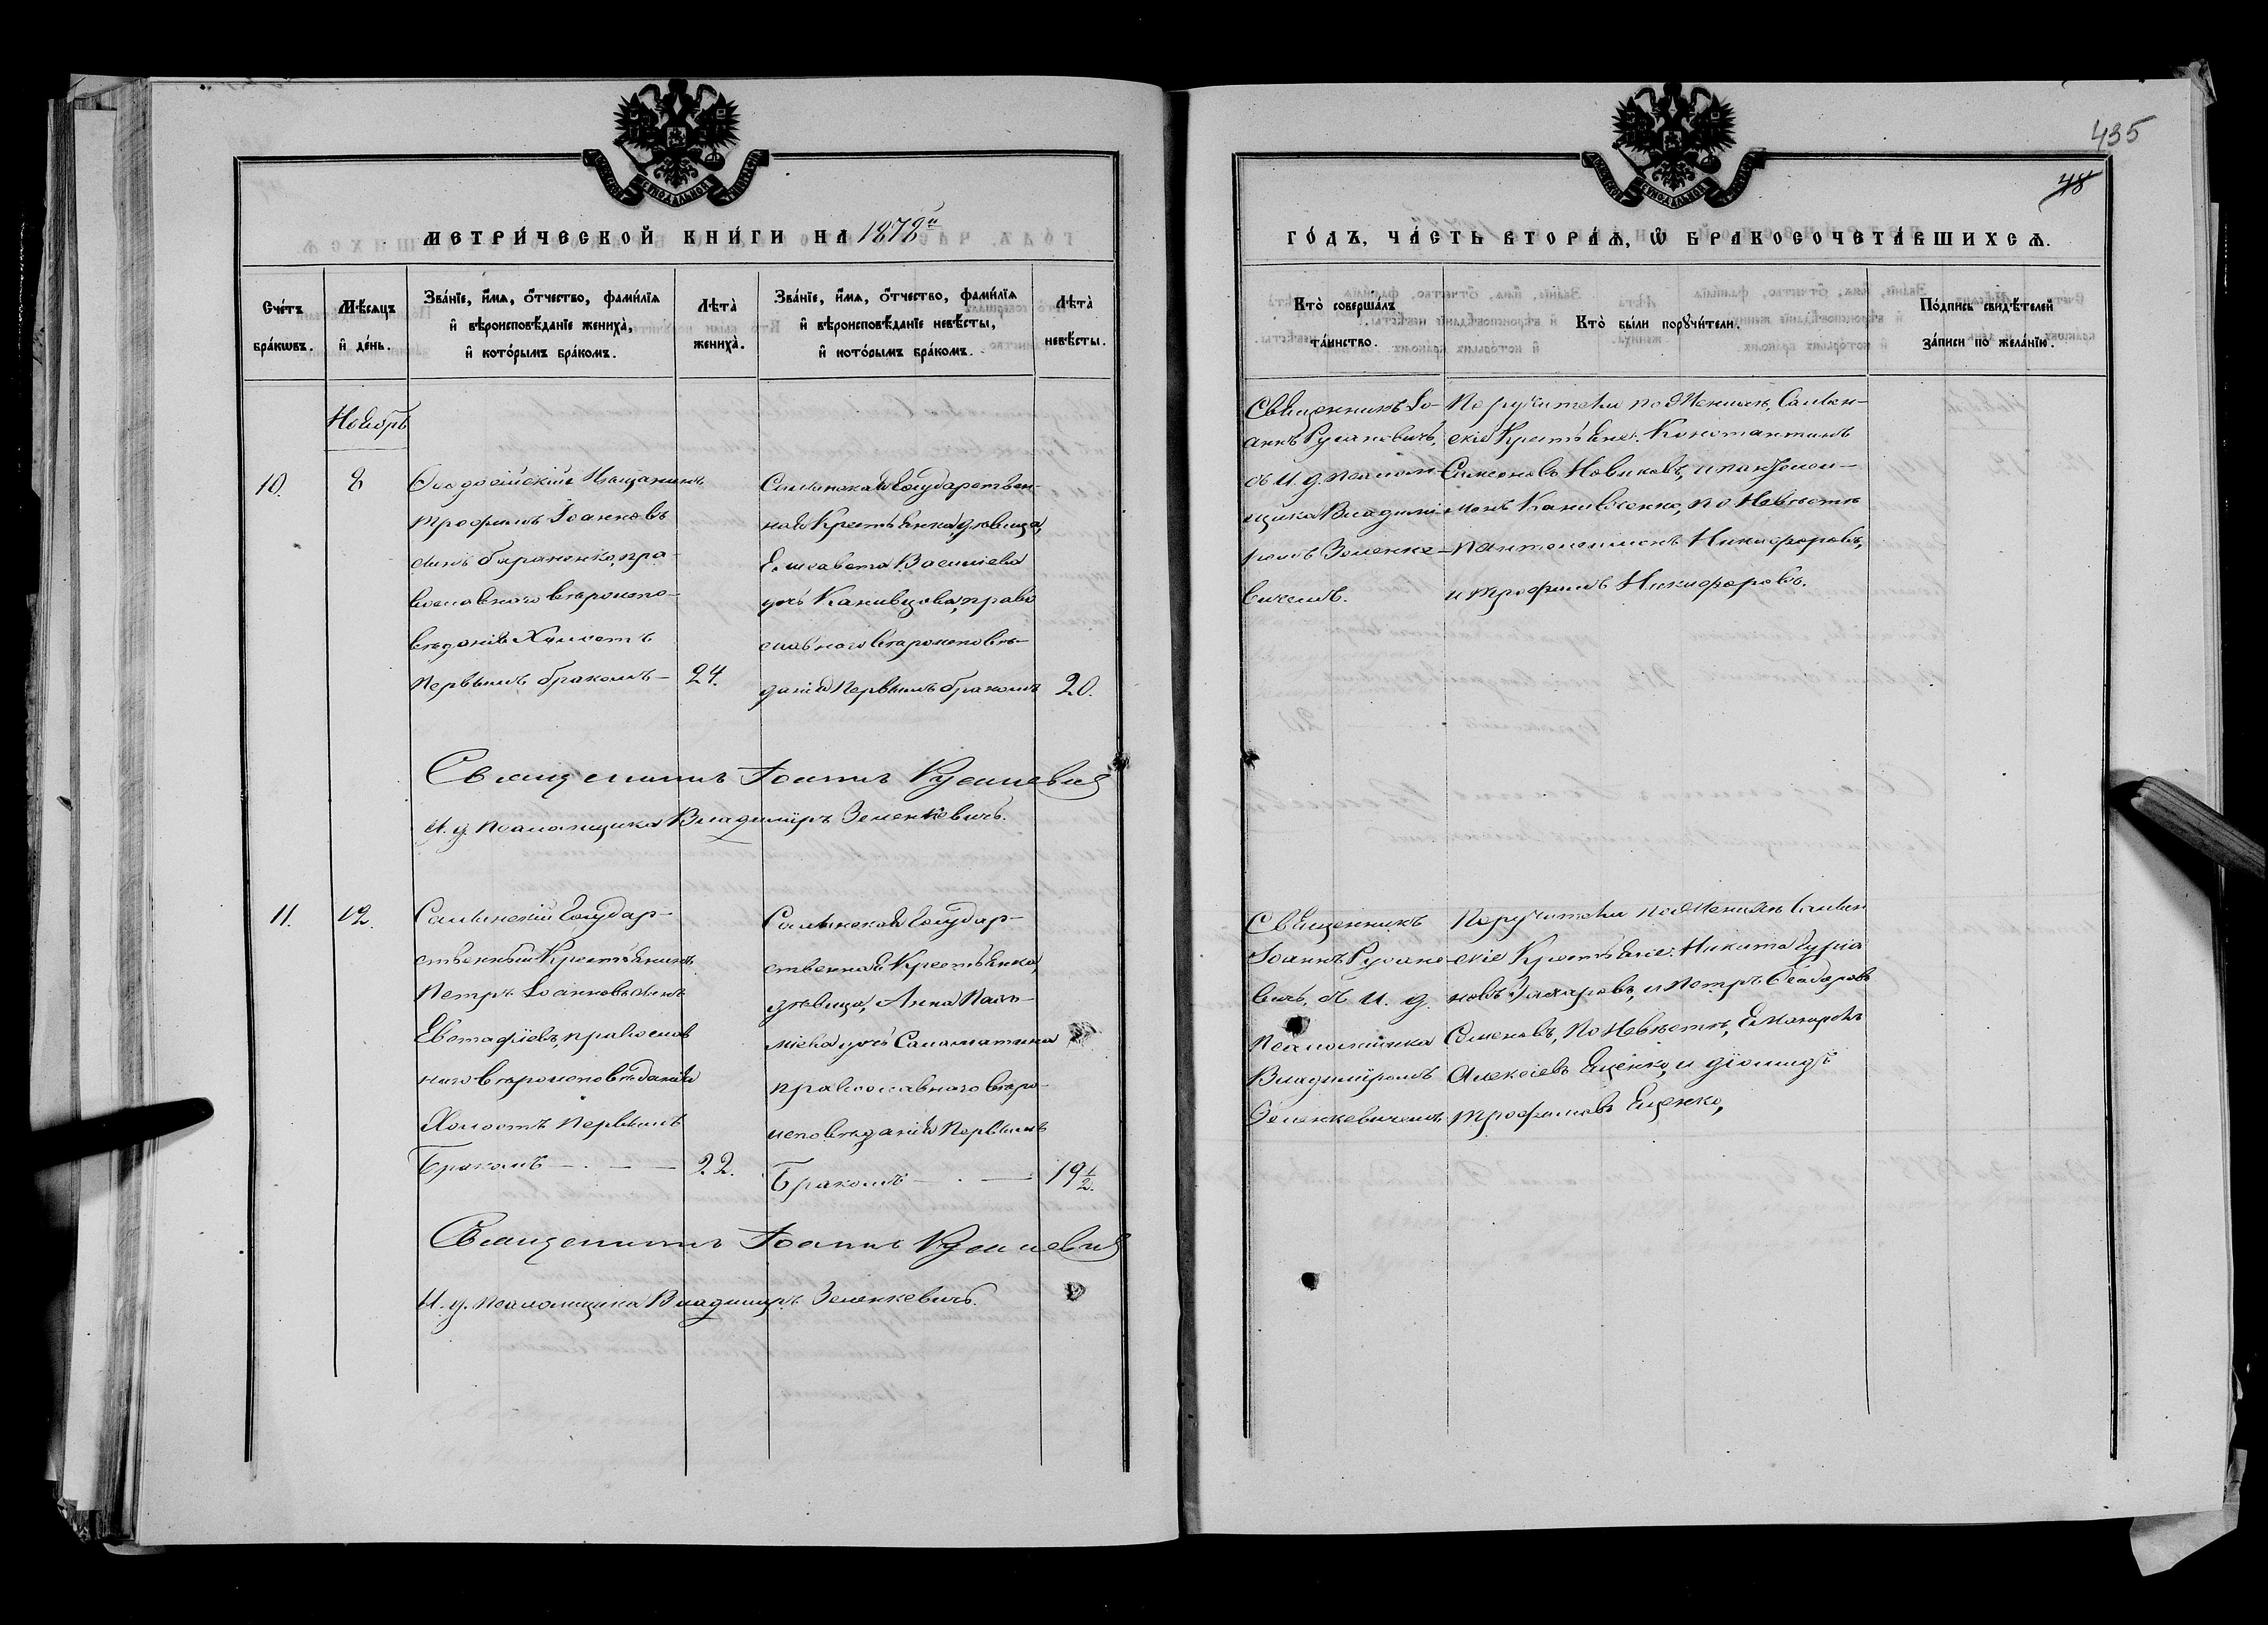 435
48
МЕТРИ́ЧЕСКОЙ КНИ́ГИ НА 1878й
ГО́ДЪ, ЧА́СТЬ ВТОРА́Я, Ѡ БРАКОСОЧЕТА́ВШИХСЯ.
Сче́тъ бра́кѡвъ.
Мѣ́сяцъ и де́нь.
Зва́нїе, и́мя, ѻ́тчество, фами́лїя и вѣроисповѣ́данїе жениха̀, и кото́рымъ бра́комъ.
Лѣта̀ жениха̀.
Зва́нїе, и́мя, ѻ́тчество, фами́лїя и вѣроисповѣ́данїе невѣ́сты, и кото́рымъ бра́комъ.
Лѣта̀ невѣ́сты.
Кто̀ соверша́лъ та́инство.
Кто̀ бы́ли порꙋчи́тели.
По́дпись свидѣ́телей за́писи по жела́нїю.
Ноябрь
10.
8
Мѣщанинъ
Трофимъ Іоанновъ
сынъ Бараненко, пра-
вославнаго вѣроиспо-
вѣданія Холостъ
первымъ бракомъ—
24.
Государствен-
ная Крестьянка, дѣвица,
Елисавета Василіева
дочь Канивцова, право
славнаго вѣроисповѣ-
данія первымъ бракомъ
20.
Священникъ Іо-
аннъ Русановичъ,
съ И. д. псалом-
щика Владимі-
ромъ Зеленке-
вичемъ.
Поручители по Женихѣ,
скіе Крестьяне: Константинъ
Симеоновъ Новиковъ, и
Канивченко, по Невѣстѣ
Пантелеимонъ Никифоровъ,
и Трофимъ Никифоровъ.
Священникъ Іоаннъ Русановичъ
И. д. псаломщика Владиміръ Зеленкевичъ.
11.
12.
Государ-
ственный Крестьянинъ
Петръ Іоанновъ сынъ
Евстафіевъ, православ
наго вѣроисповѣданія
Холостъ первымъ
Бракомъ — . — —
22.
Государ-
ственная Крестьянка,
дѣвица, Анна
дочь Саломатина
православнаго вѣро-
исповѣданія первымъ
Бракомъ — . —
19½.
Священникъ
Іоаннъ Русано
вичъ, съ И. д.
Псаломщика
Владиміромъ
Зеленкевичемъ.
Поручители по Женихѣ
скіе Крестьяне: Никита
Захаровъ, и Петръ Ѳеодоровъ
Семеновъ, по Невѣстѣ,
Алексіевъ Еценко, и Діомидъ
Трофимовъ Еценко,
Священникъ Іоаннъ Русановичъ
И. д. псаломщика Владиміръ Зеленкевичъ.